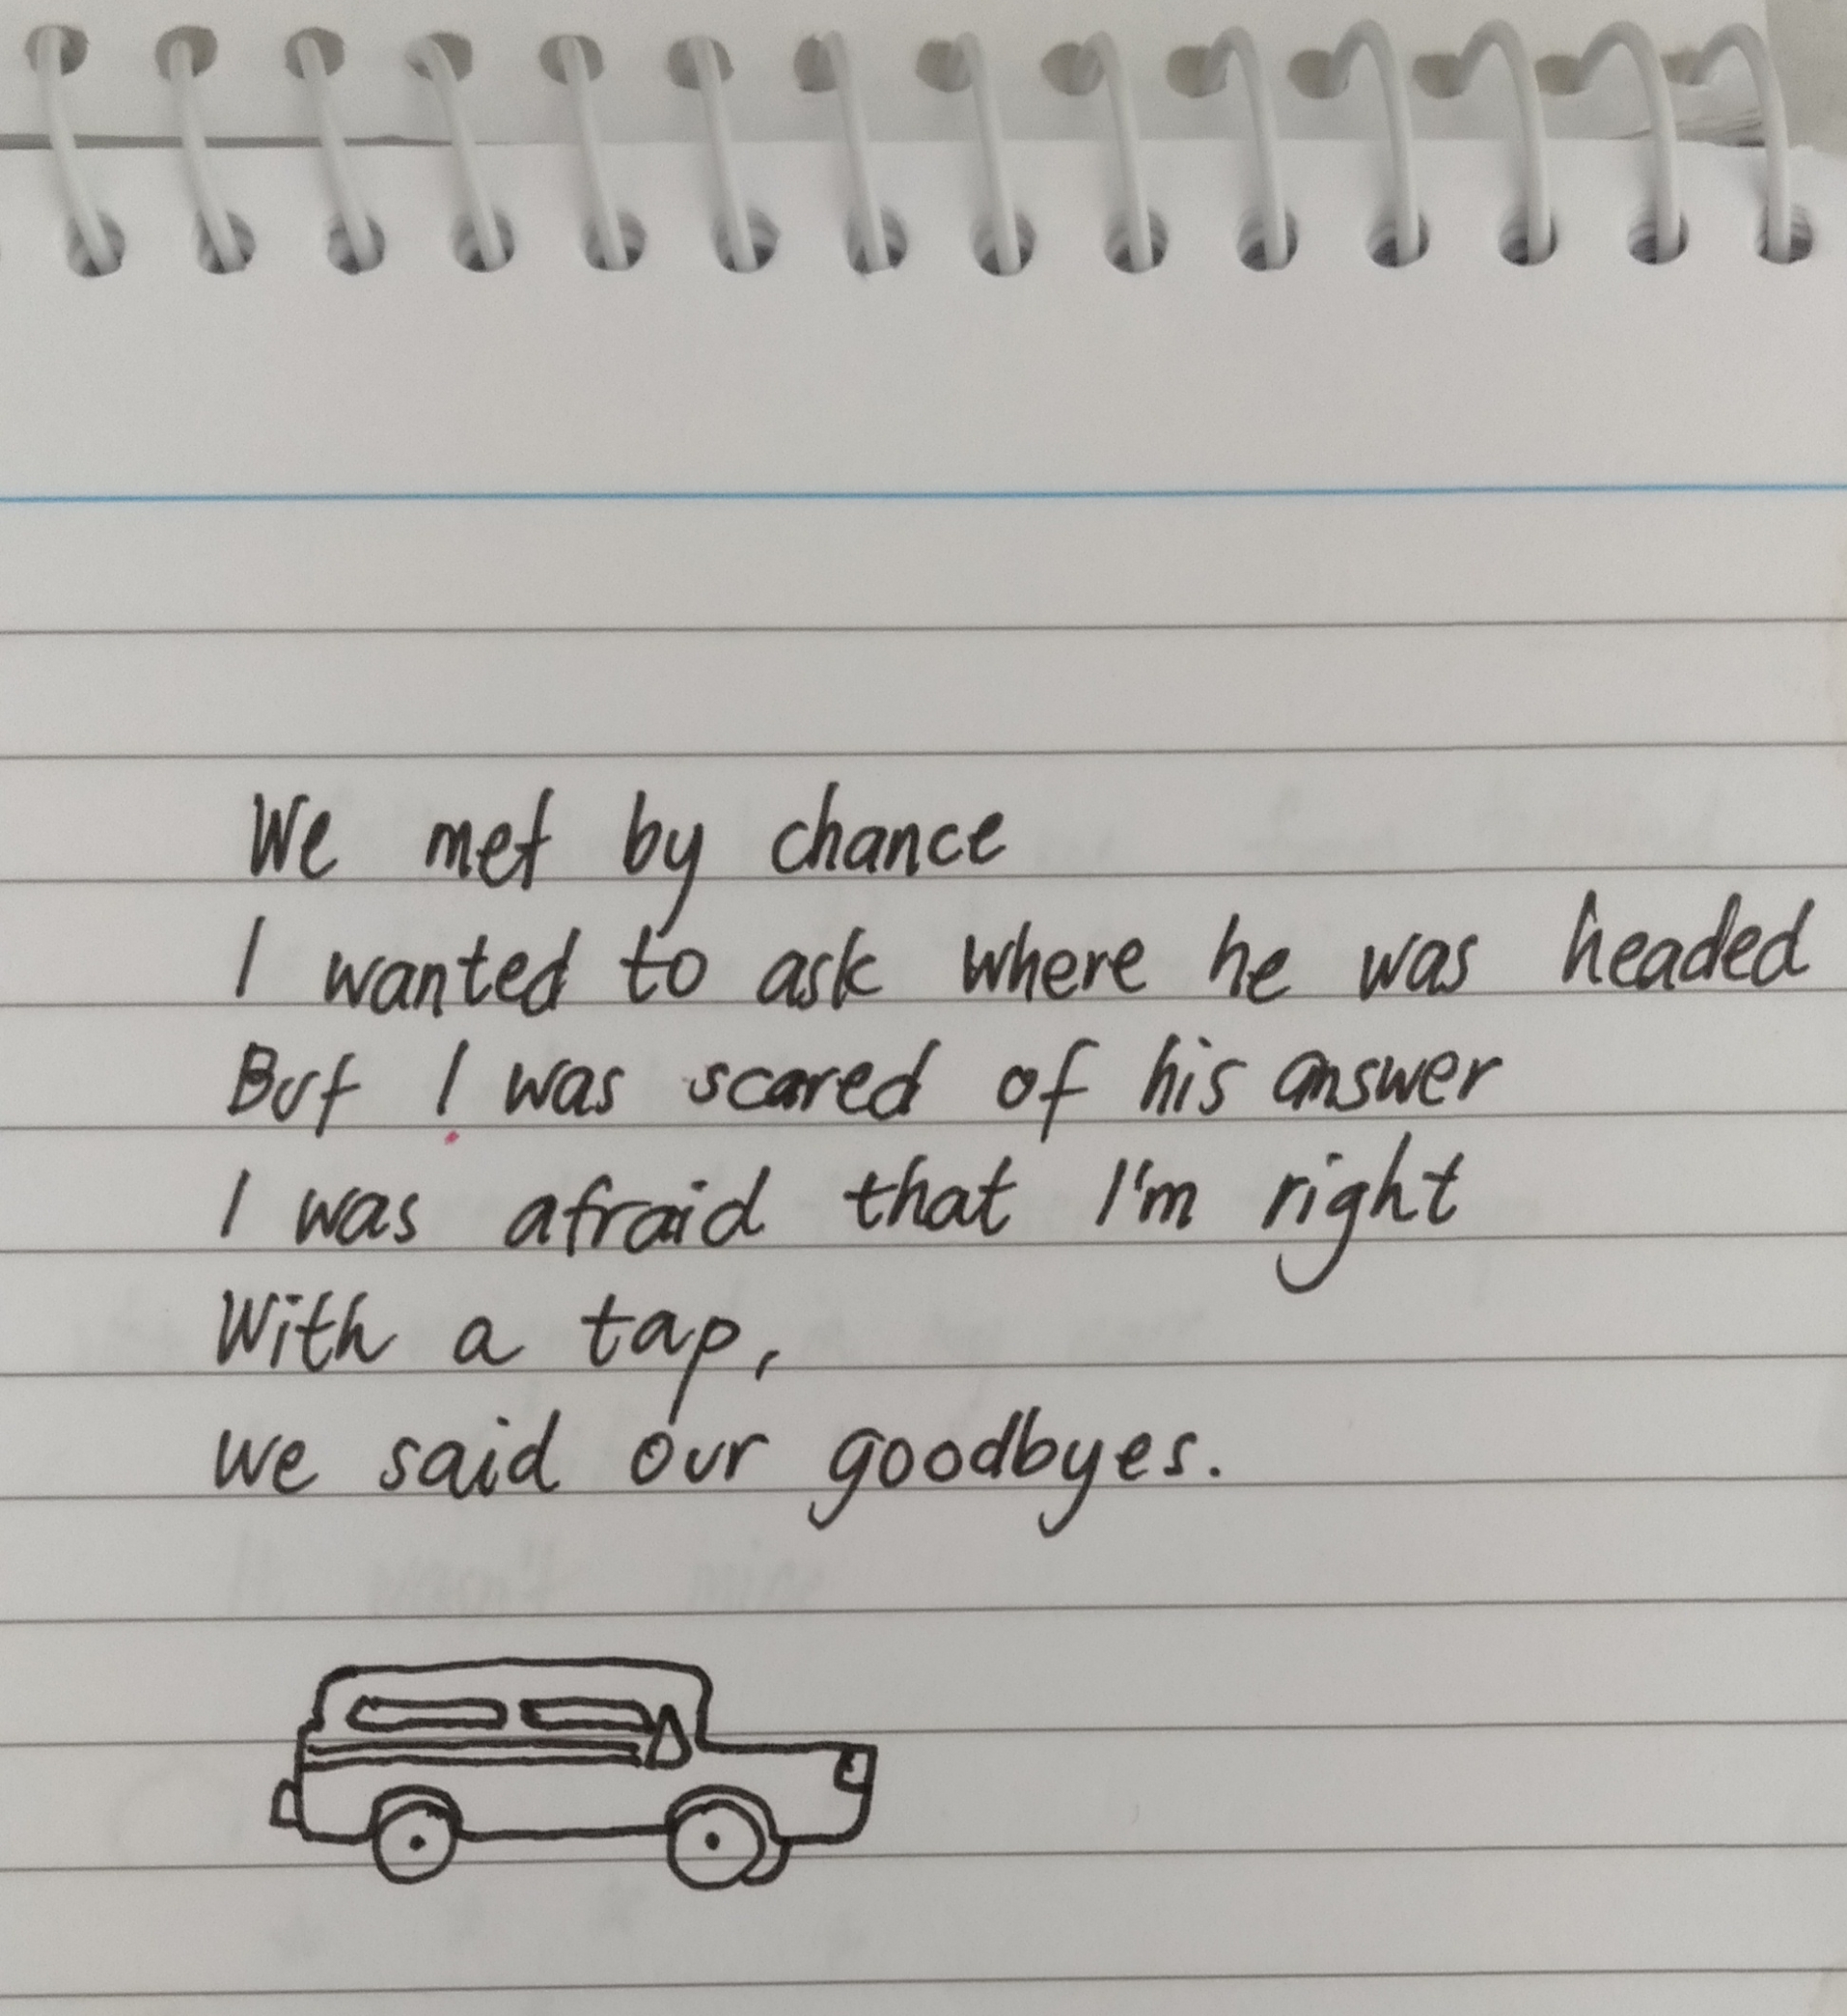 We met by chance
I wanted to ask where he was headed
But I was scared of his answer
I was afraid that I'm right
With a tap,
we said our goodbyes.